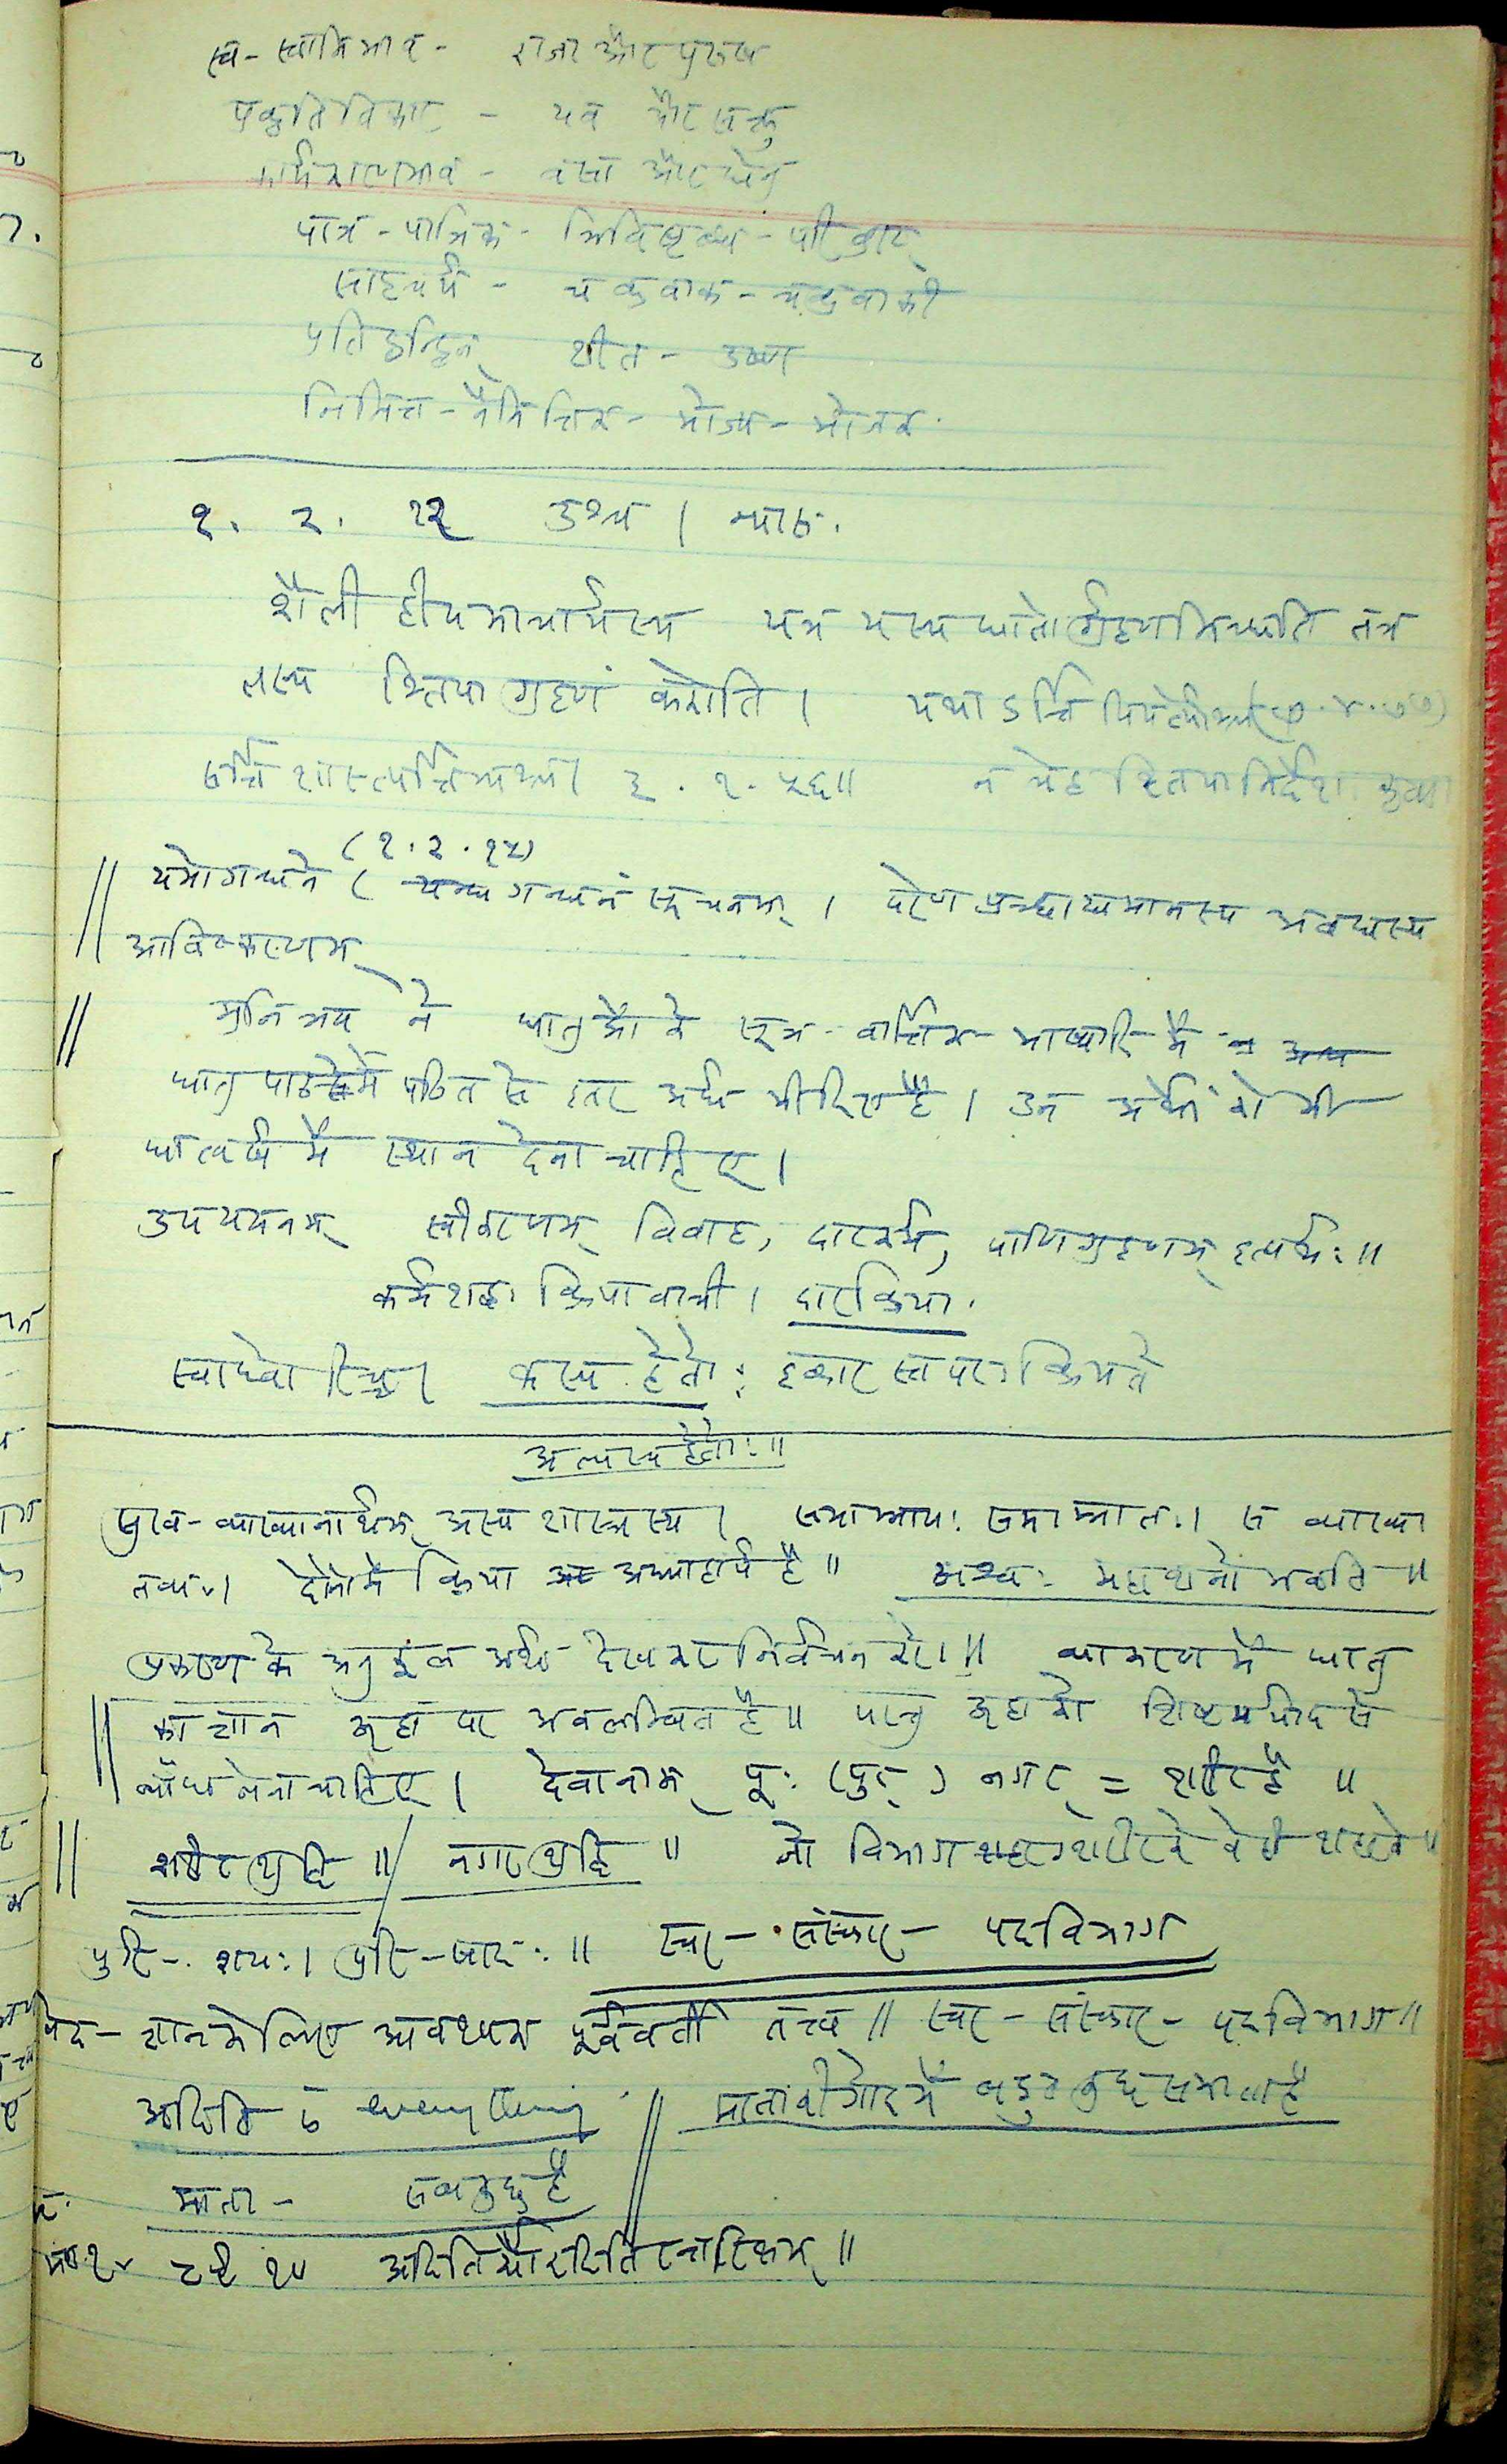 स्व-स्वामिभाव - राजा और पुरुष
प्रकृति विकार - यव और सक्तु
कार्यकारणभाव - वत्स और धेनु
पात्र-पात्रिक - त्रिविष्टब्ध - परिव्राट्
साहचर्य - चक्रवाक - चक्रवाकी
प्रतिद्वन्द्विन् शीत - उष्ण
निमित्त - नैमित्तिक - भोज्य - भोजक
१. २. १२ उश्च । न्यास.
शैली हीयमाचार्यस्य यत्र यस्य धातोर्ग्रहणमिच्छति तत्र
तस्य श्तिपा ग्रहणं करोति । यथा ऽर्त्ति पिपर्त्योश्च (७.४.७७)
सर्त्तिशास्त्यर्त्तिभ्यश्च । ३.१.५६॥ न चेह श्तिपा निर्देशः कृतः
(१.२.१५)
यमो गन्धने ( गन्धनं सूचनम् । परेण प्रच्छाद्यमानस्य अवद्यस्य
आविष्करणम्
मुनित्रय ने धातुओं के सूत्र-वार्त्तिक-भाष्यादि में
धातु पाठ में पठित से इतर अर्थ भी दिए हैं । उन अर्थों को भी
धात्वर्थ में स्थान देना चाहिए ।
उपयमनम् स्वीकरणम् विवाह, दारकर्म, पाणिग्रहणम् इत्यर्थः ॥
कर्मशब्दः क्रियावाची । दारक्रिया.
स्थाघ्वोरिच्च । कस्य हेतोः इकारस्तपरः क्रियते
अल्पस्य हेतोः ॥
व्याख्यानार्थम् अस्य शास्त्रस्य । समाम्नायः समाम्नातः । स व्याख्या
तव्यः । दोनों में क्रिया अध्याहार्य है ॥ अश्वः महाशनो भवति ॥
प्रकरण के अनुकूल अर्थ देखकर निर्वचन करो ॥ व्याकरण में धातु
का ज्ञान ऊहा पर अवलम्बित है ॥ परन्तु ऊहा को शिष्ट मर्यादा से
बाँध लेना चाहिए । देवानाम् पूः (पुर्) नगर = शरीर है ॥
शरीर शुद्धि ॥ / नगर शुद्धि ॥ जो विभाग शरीर के वे ही शहर के ॥
पुरि - शयः । पुरि - सादः ॥ स्वर - संस्कार - पदविभाग
वेद - ज्ञान के लिए आवश्यक पूर्ववर्ती तत्त्व ॥ स्वर - संस्कार - पदविभाग ॥
अदिति is everything. // माता की गोद में बहुत कुछ समाता है
माता - सब कुछ है
८९ १० अदितिर्द्यौरदितिरन्तरिक्षम् ॥